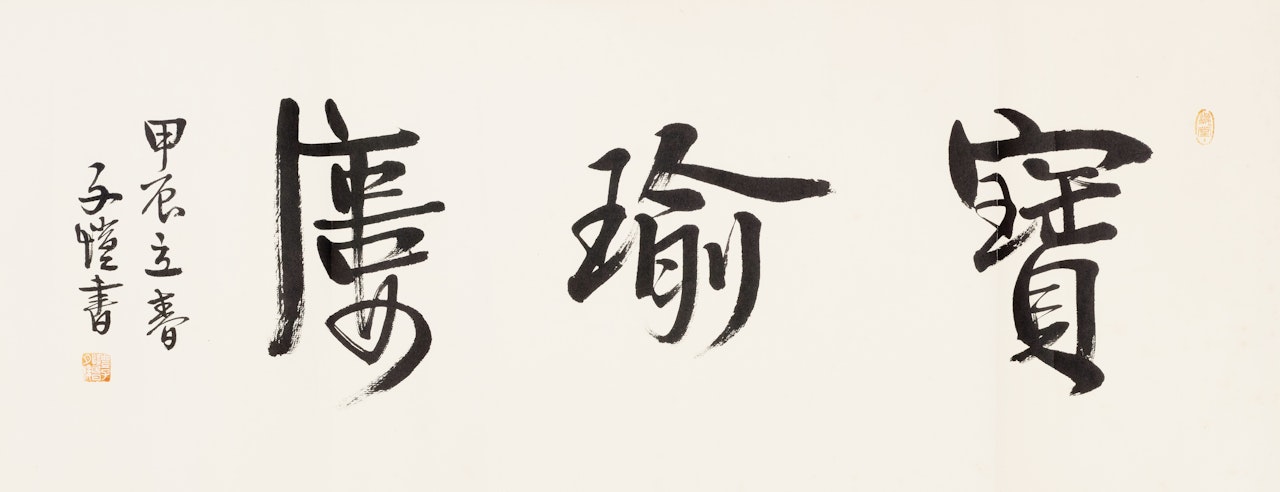 寶瑜廔
甲辰立春
子愷書